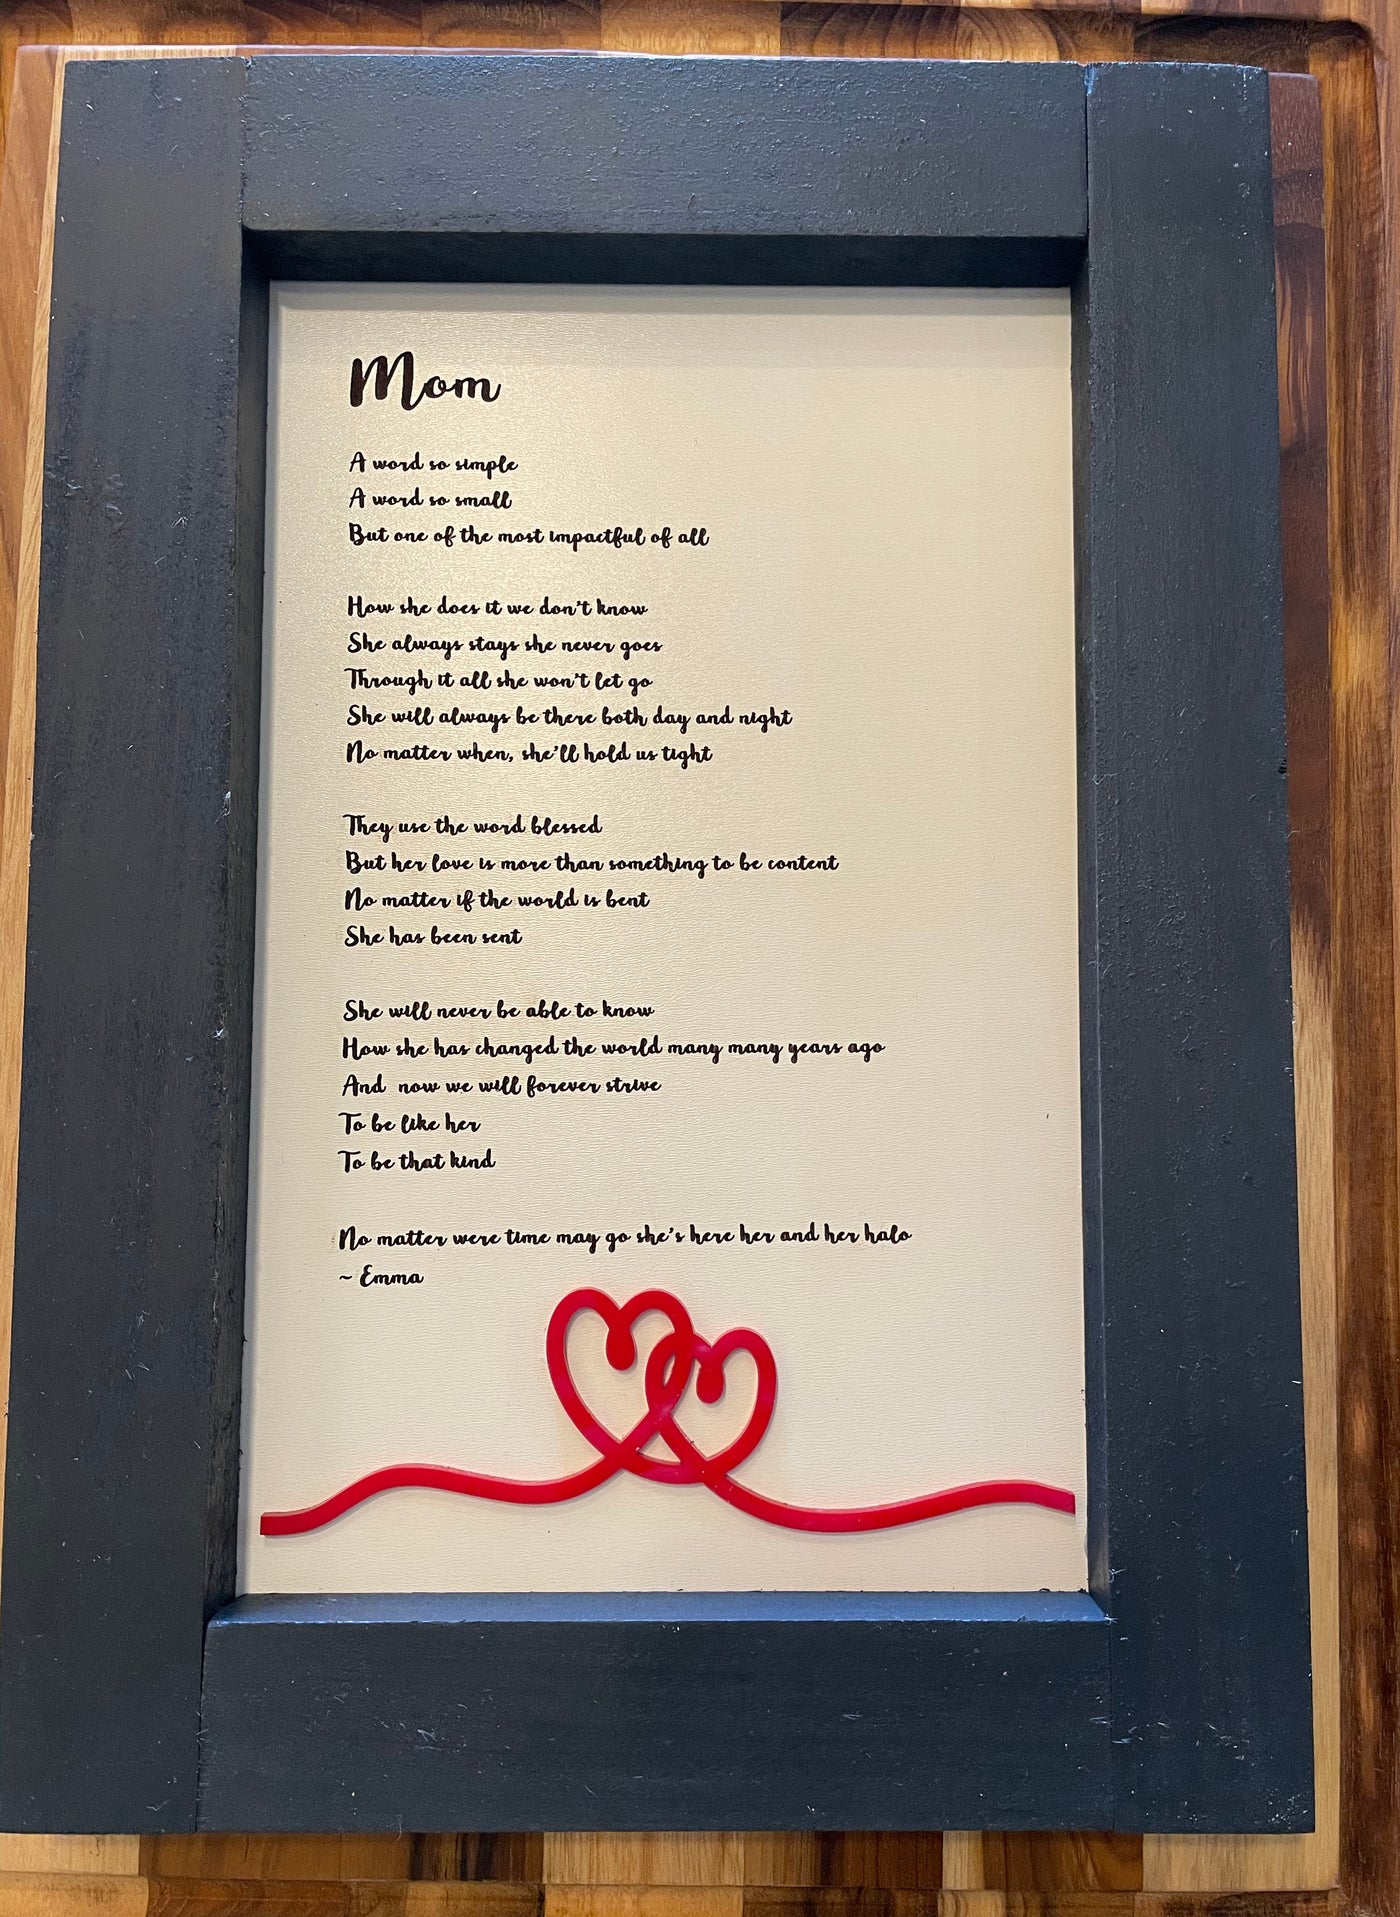 Mom
A word so simple
A word so small
But one of the most impactful of all
How she does it we don't know
She always stays she never goes
Through it all she won't let go
She will always be there both day and night
No matter when, she'll hold us tight
They use the word blessed
But her love is more than something to be content
No matter if the world is bent
She has been sent
She will never be able to know
How she has changed the world many many years ago
And  now we will forever strive
To be like her
To be that kind
No matter were time may go she's here her and her halo
~ Emma